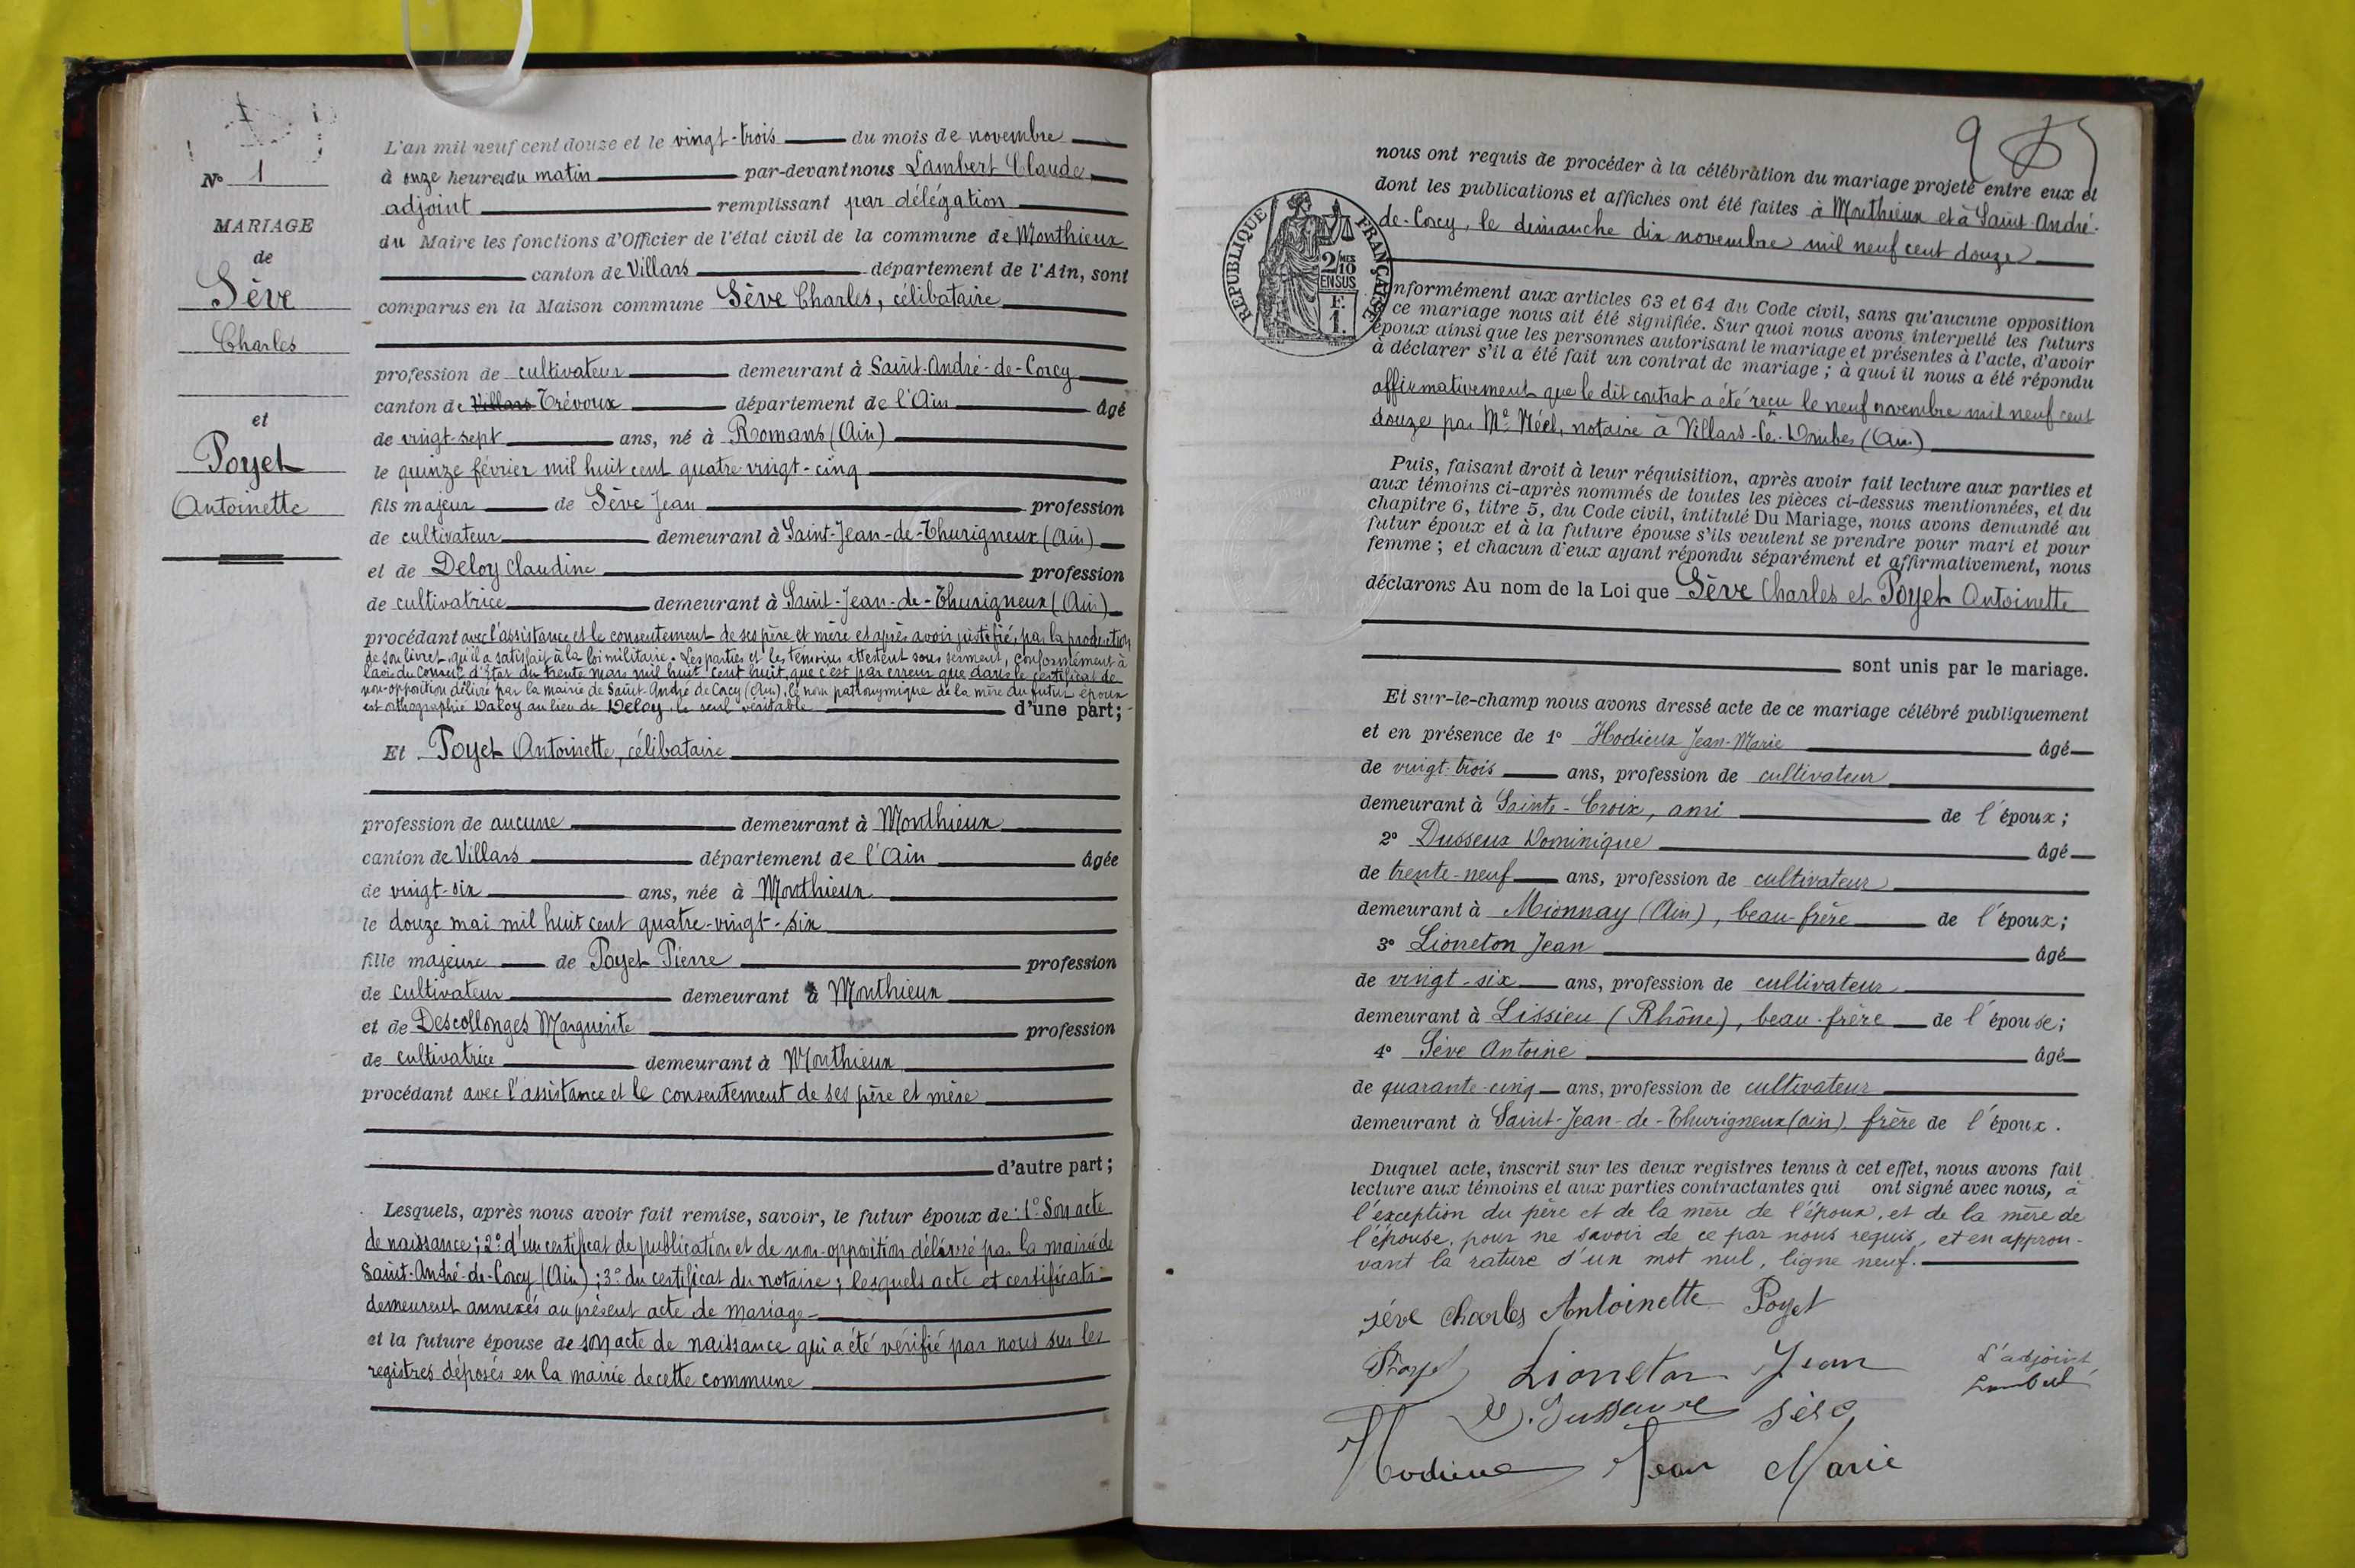 Nº 1
MARIAGE
de
Sève
Charles
et
Poyet
Antoinette
L'an mil neuf cent douze et le vingt-trois du mois de novembre
à onze heures du matin par-devant nous Lambert Claude,
adjoint remplissant par délégation
du Maire les fonctions d'Officier de l'état civil de la commune de Monthieux
canton de Villars département de l'Ain, sont
comparus en la Maison commune Sève Charles, célibataire
profession de cultivateur demeurant à Saint-André-de-Corcy
canton de Villars Trévoux département de l'Ain âgé
de vingt-sept ans, né à Romans (Ain)
le quinze février mil huit cent quatre-vingt-cinq
fils majeur de Sève Jean profession
de cultivateur demeurant à Saint-Jean-de-Thurigneux (Ain)
et de Deloy Claudine profession
de cultivatrice demeurant à Saint-Jean-de-Thurigneux (Ain)
procédant avec l'assistance et le consentement de ses père et mère et après avoir justifié, par la production
de son livret, qu'il a satisfait à la loi militaire. Les parties et les témoins attestent sous serment, conformément à
l'avis du Conseil d'Etat du trente mars mil huit cent huit, que c'est par erreur que dans le certificat de
non-opposition délivré par la mairie de Saint-André de Corcy (Ain), le nom patronymique de la mère du futur époux
est orthographié Daloy au lieu de Deloy, le seul véritable d'une part;
Et Poyet Antoinette, célibataire
profession de aucune demeurant à Monthieux
canton de Villars département de l'Ain âgée
de vingt-six ans, née à Monthieux
le douze mai mil huit cent quatre-vingt-six
fille majeure de Poyet Pierre profession
de cultivateur demeurant à Monthieux
et de Descollonges Marguerite profession
de cultivatrice demeurant à Monthieux
procédant avec l'assistance et le consentement de ses père et mère
d'autre part;
Lesquels, après nous avoir fait remise, savoir, le futur époux de: 1º Son acte
de naissance; 2º d'un certificat de publication et de non-opposition délivré par la mairie de
Saint-André-de-Corcy (Ain); 3º du certificat du notaire; lesquels acte et certificats
demeurent annexés au présent acte de mariage
et la future épouse de son acte de naissance qui a été vérifié par nous sur les
registres déposés en la mairie de cette commune
nous ont requis de procéder à la célébration du mariage projeté entre eux et
dont les publications et affiches ont été faites à Monthieux et à Saint-André-
de-Corcy, le dimanche dix novembre mil neuf cent douze
RÉPUBLIQUE FRANÇAISE
2/10 MES
EN SUS
F.
1.
nformément aux articles 63 et 64 du Code civil, sans qu'aucune opposition
ce mariage nous ait été signifiée. Sur quoi nous avons interpellé les futurs
époux ainsi que les personnes autorisant le mariage et présentes à l'acte, d'avoir
à déclarer s'il a été fait un contrat de mariage; à quoi il nous a été répondu
affirmativement que le dit contrat a été reçu le neuf novembre mil neuf cent
douze par Me Néel, notaire à Villars-les-Dombes (Ain)
Puis, faisant droit à leur réquisition, après avoir fait lecture aux parties et
aux témoins ci-après nommés de toutes les pièces ci-dessus mentionnées, et du
chapitre 6, titre 5, du Code civil, intitulé Du Mariage, nous avons demandé au
futur époux et à la future épouse s'ils veulent se prendre pour mari et pour
femme; et chacun d'eux ayant répondu séparément et affirmativement, nous
déclarons Au nom de la Loi que Sève Charles et Poyet Antoinette
sont unis par le mariage.
Et sur-le-champ nous avons dressé acte de ce mariage célébré publiquement
et en présence de 1º Hodieux Jean-Marie âgé
de vingt-trois ans, profession de cultivateur
demeurant à Sainte-Croix, ami de l'époux;
2º Dusseux Dominique âgé
de trente-neuf ans, profession de cultivateur
demeurant à Mionnay (Ain), beau-frère de l'époux;
3º Lioneton Jean âgé
de vingt-six ans, profession de cultivateur
demeurant à Lissieu (Rhône), beau-frère de l'épouse;
4º Sève Antoine âgé
de quarante-cinq ans, profession de cultivateur
demeurant à Saint-Jean-de-Thurigneux (Ain) frère de l'époux.
Duquel acte, inscrit sur les deux registres tenus à cet effet, nous avons fait
lecture aux témoins et aux parties contractantes qui ont signé avec nous, à
l'exception du père et de la mère de l'époux, et de la mère de
l'épouse, pour ne savoir de ce par nous requis, et en approu-
vant la rature d'un mot nul, ligne neuf.
Séve Charles Antoinette Poyet
Poyet Lioneton Jean
L'adjoint
Lambert
D. Dusseux Sève
Hodieux Jean Marie